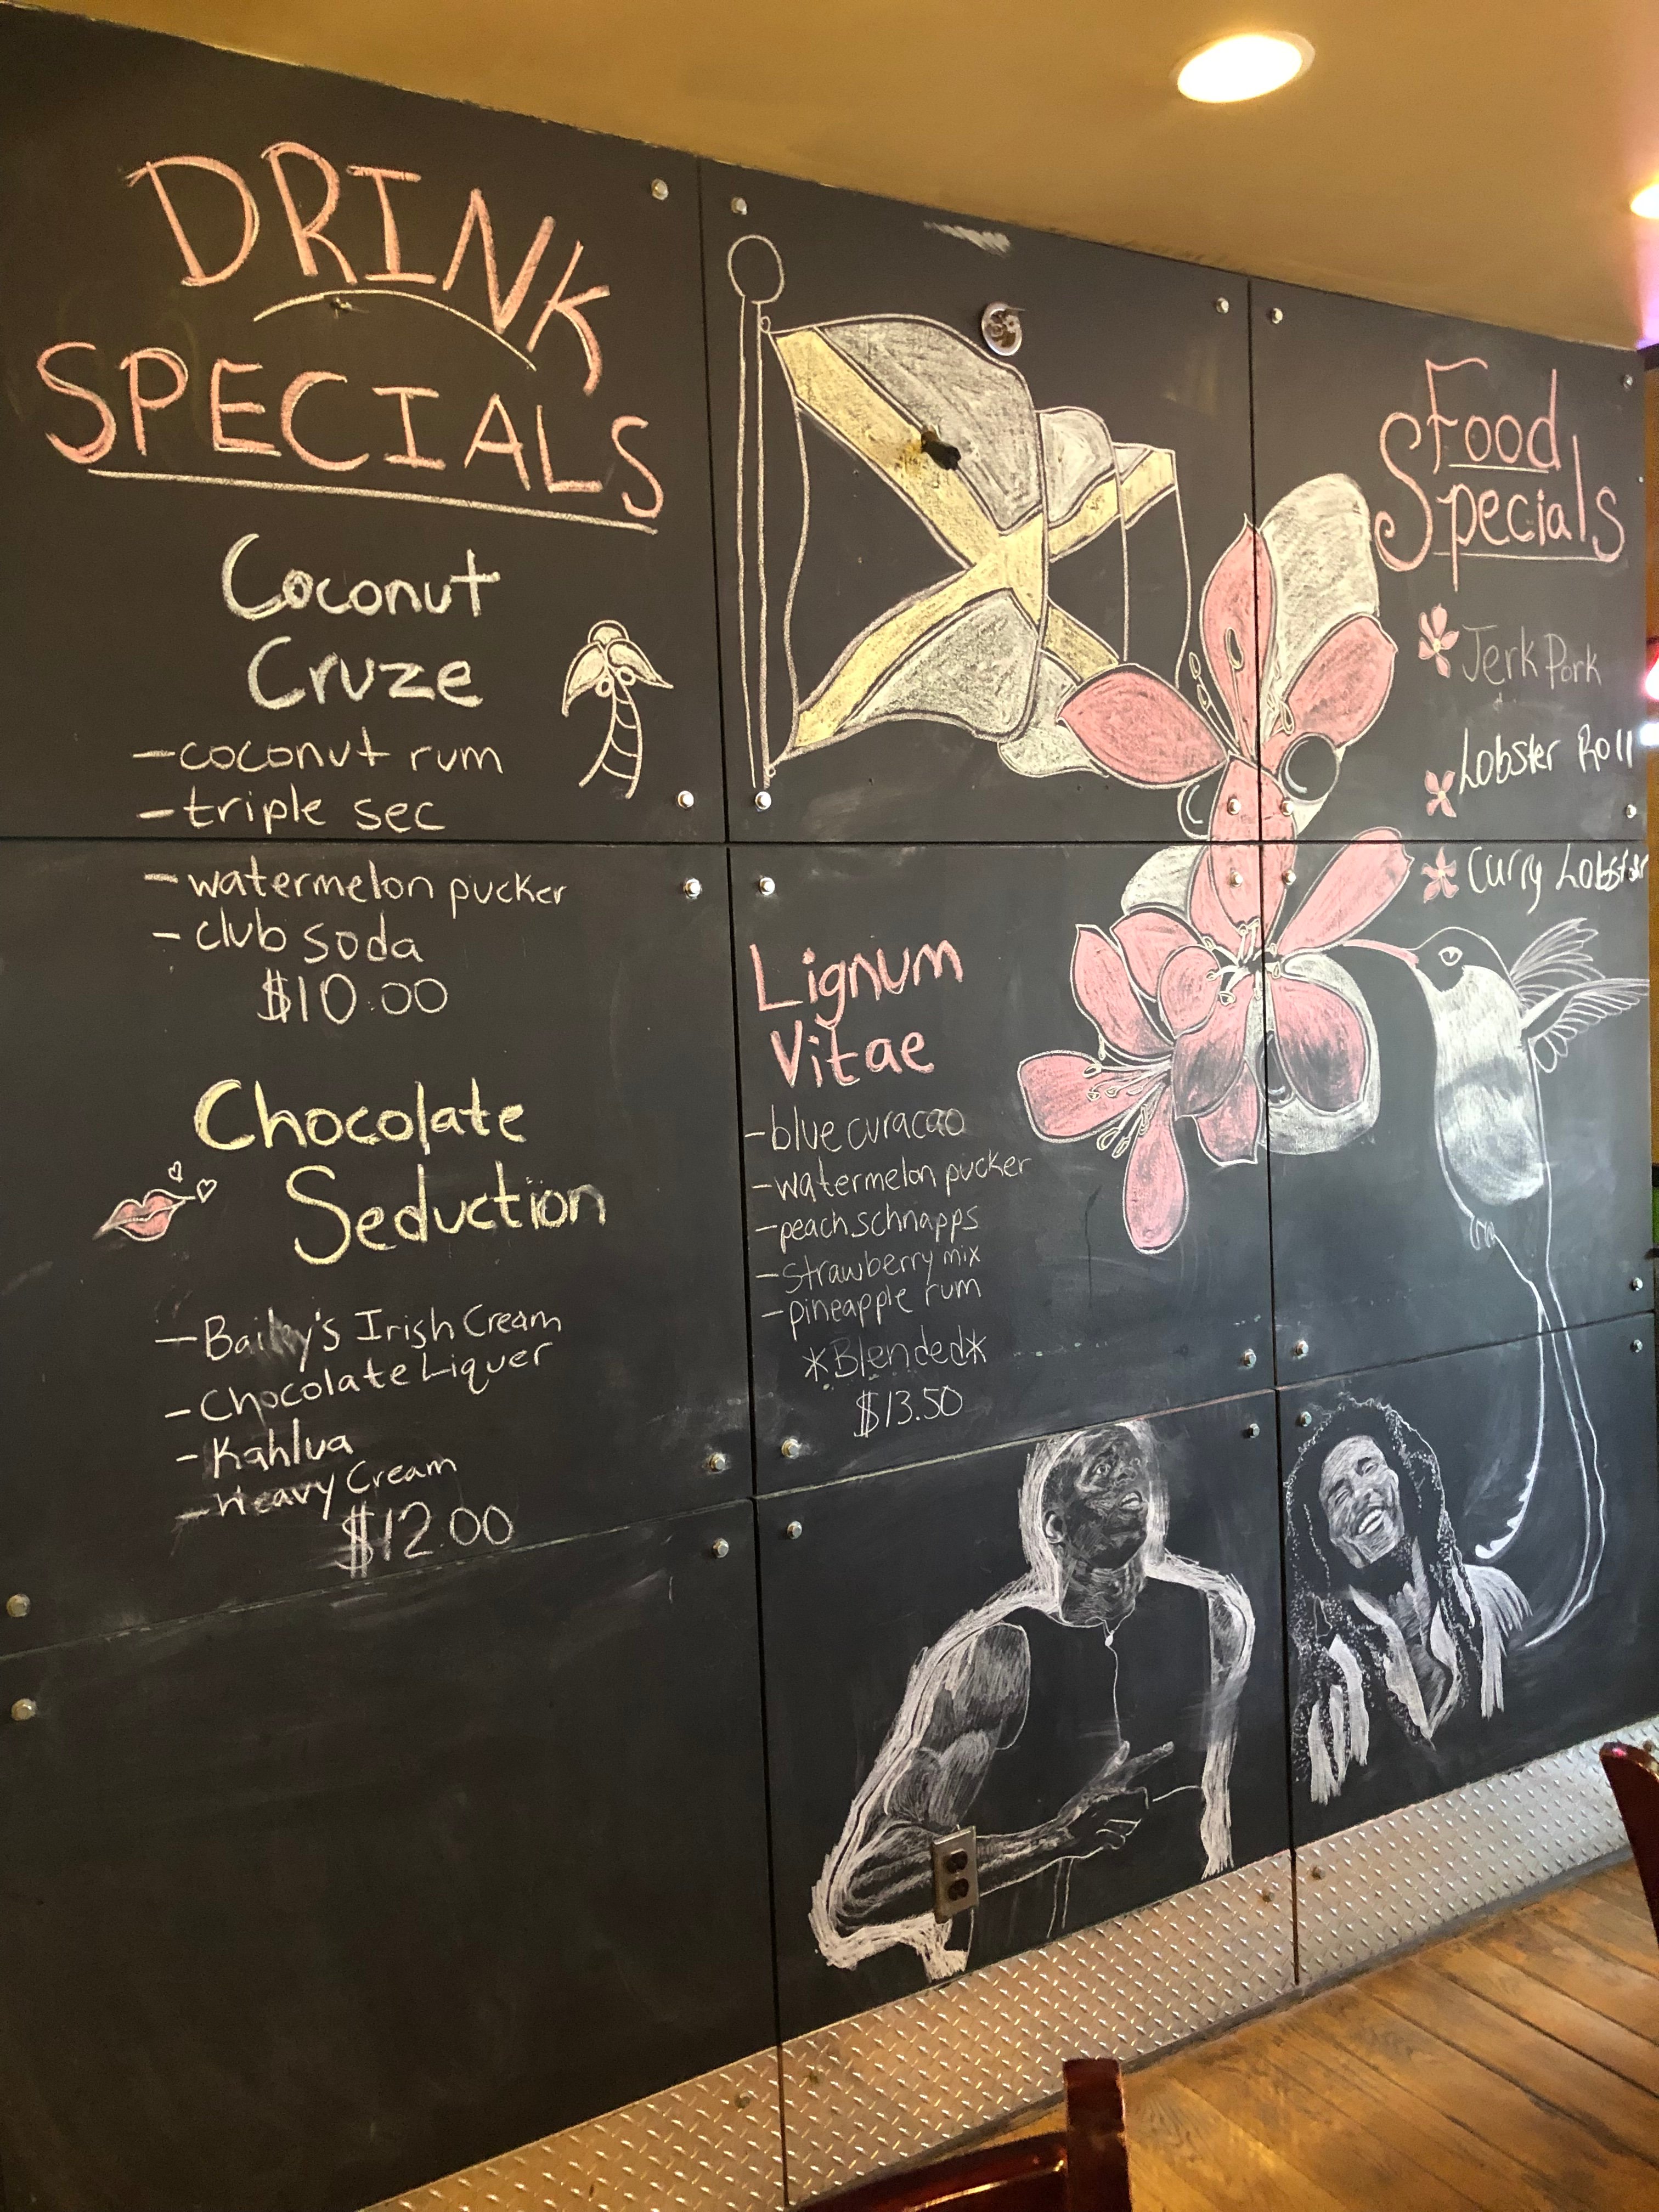 DRINK
SPECIALS
Coconut
Cruze
-coconut rum
-triple sec
-watermelon pucker
-club soda
$10.00
Chocolate
Seduction
-Bailey's Irish Cream
-Chocolate Liquer
-Kahlua
-Heavy Cream
$12.00
Lignum
Vitae
-blue curacao
-watermelon pucker
-peach schnapps
-strawberry mix
-pineapple rum
*Blended*
$13.50
Food
Specials
Jerk Pork
Lobster Roll
Curry Lobster